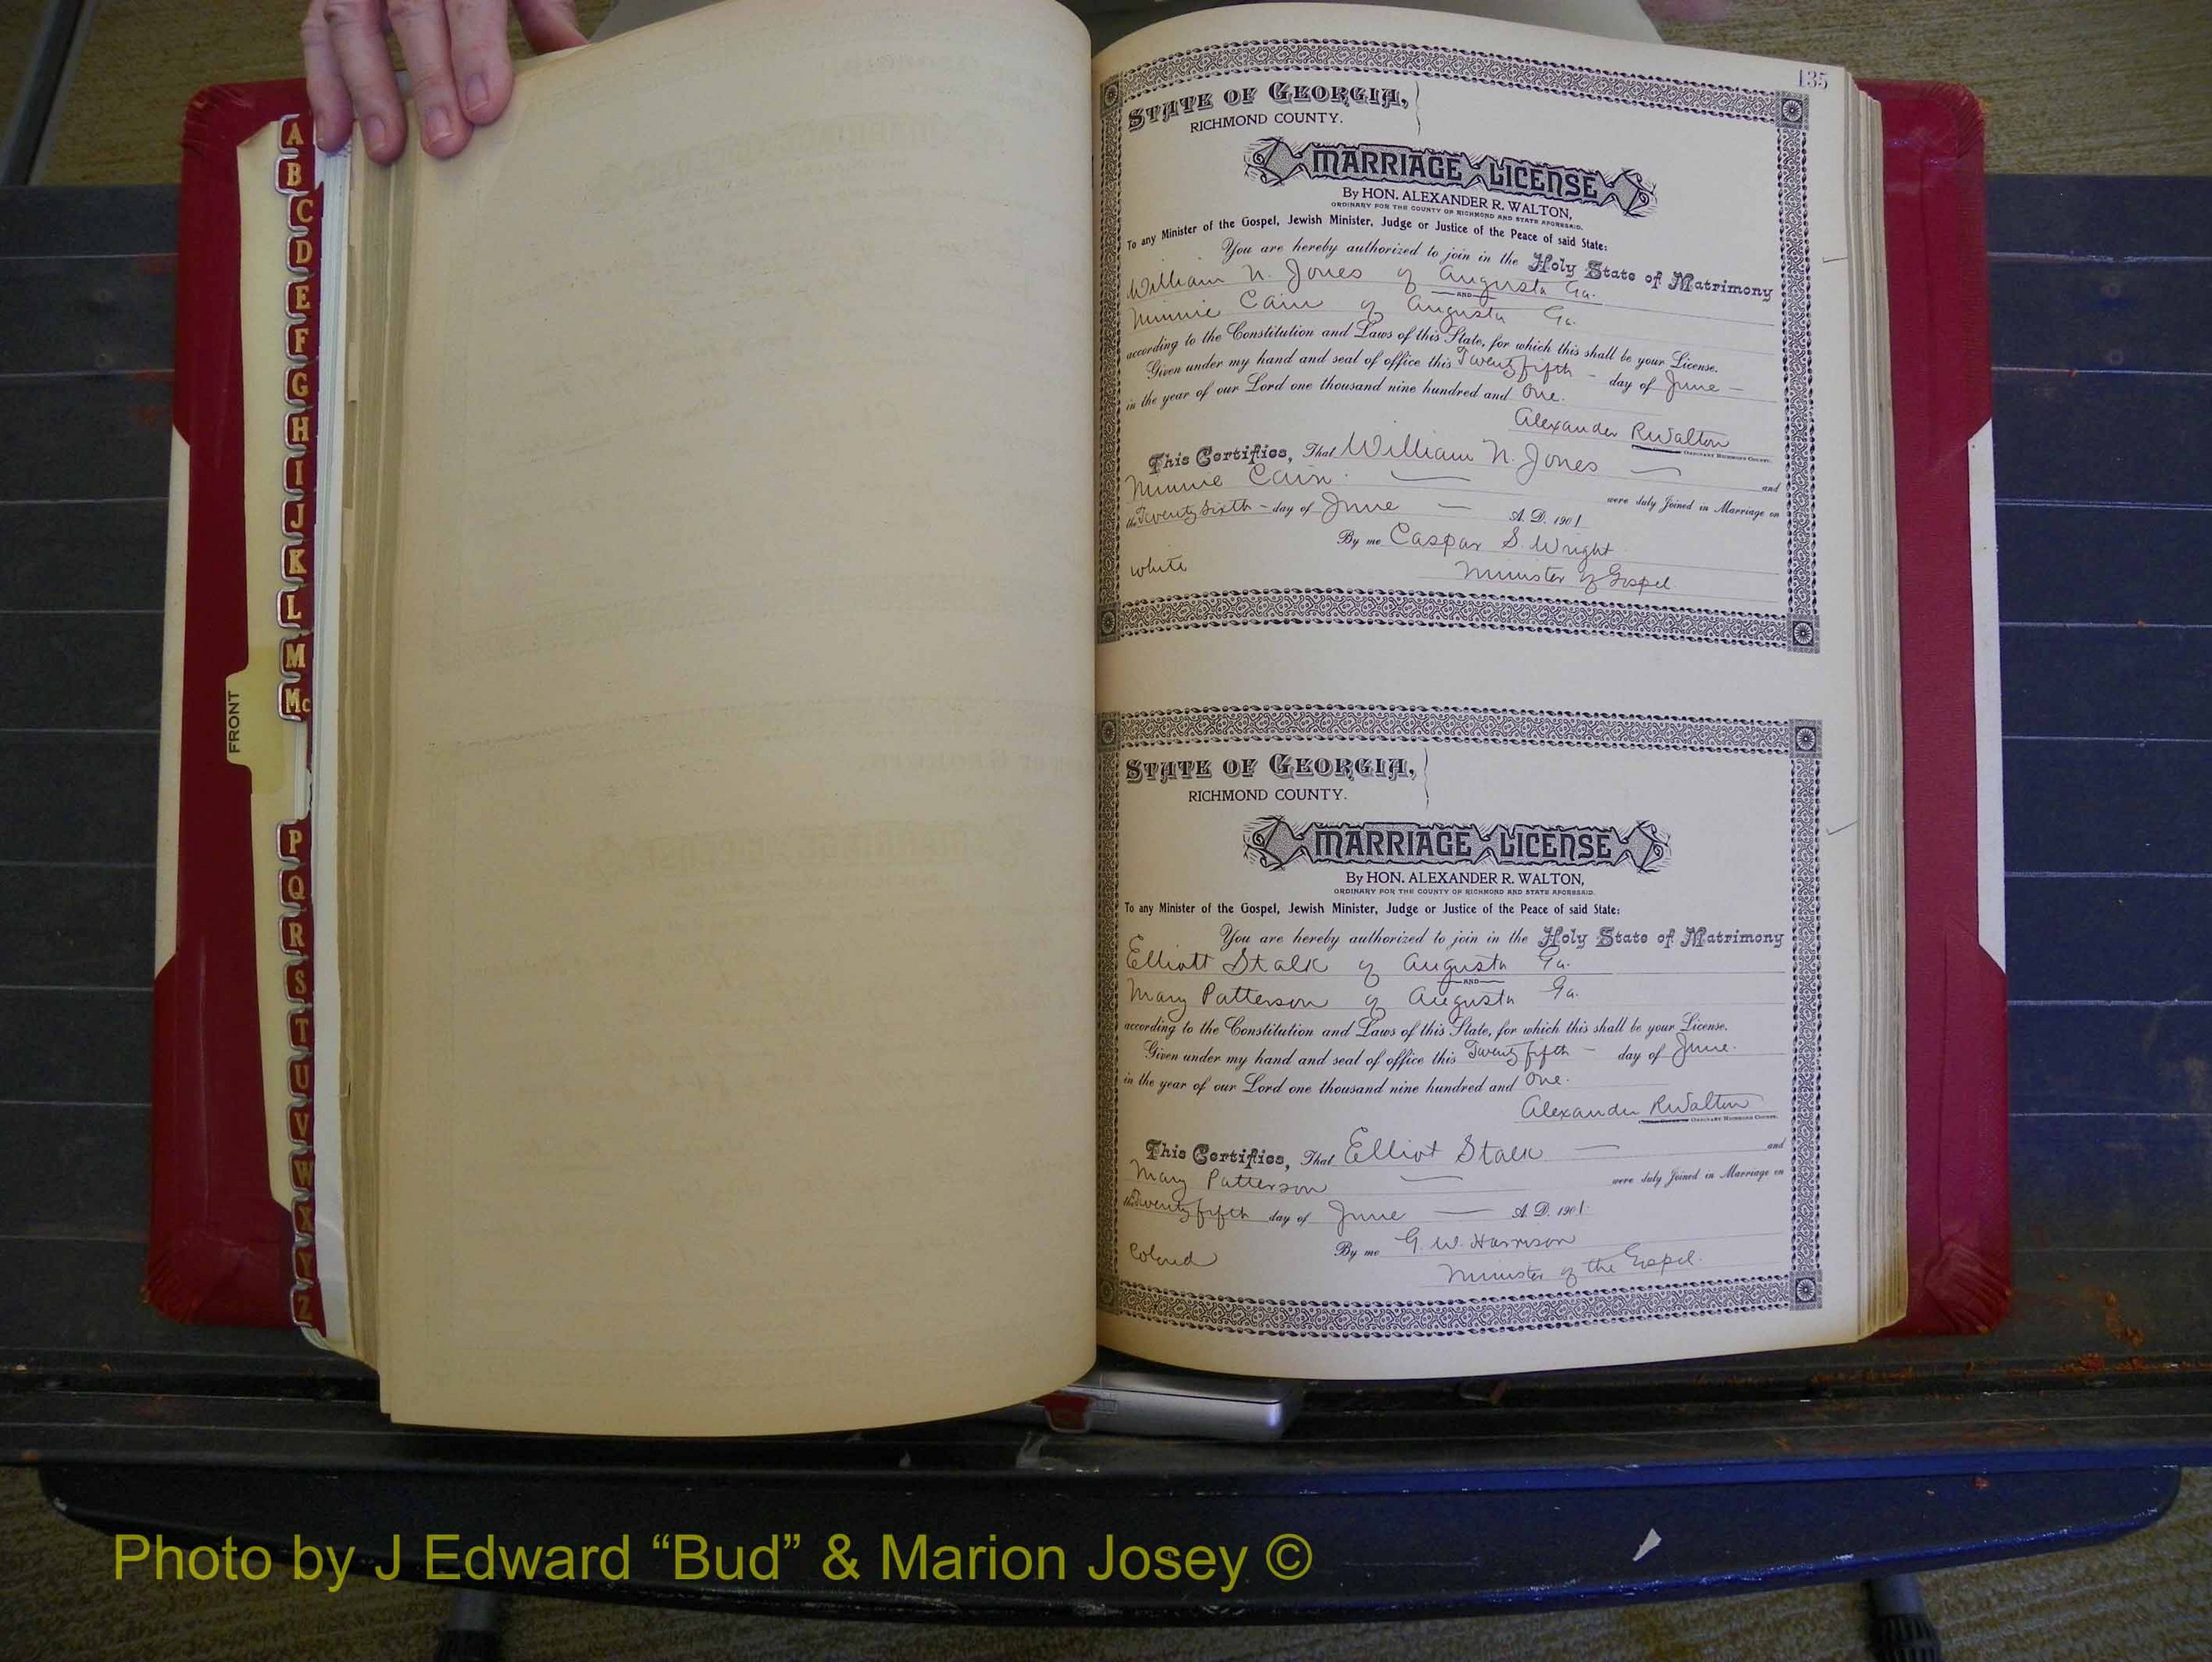 A
B
C
D
E
F
G
H
I
J
K
L
M
Mc
P
Q
R
S
T
U
V
W
X
Y
Z
FRONT
135
STATE OF GEORGIA,
RICHMOND COUNTY.
MARRIAGE LICENSE
By HON. ALEXANDER R. WALTON,
ORDINARY FOR THE COUNTY OF RICHMOND AND STATE AFORESAID.
To any Minister of the Gospel, Jewish Minister, Judge or Justice of the Peace of said State:
You are hereby authorized to join in the Holy State of Matrimony
William N. Jones of Augusta Ga.
AND
Minnie Cain of Augusta Ga.
according to the Constitution and Laws of this State, for which this shall be your License.
Given under my hand and seal of office this Twenty fifth - day of June -
in the year of our Lord one thousand nine hundred and One.
Alexander R Walton
ORDINARY RICHMOND COUNTY.
This Certifies, That William N. Jones and
Minnie Cain. were duly Joined in Marriage on
the Twenty Sixth - day of June - A. D. 1901
By me Caspar S. Wright
white Minister of Gospel.
STATE OF GEORGIA,
RICHMOND COUNTY.
MARRIAGE LICENSE
By HON. ALEXANDER R. WALTON,
ORDINARY FOR THE COUNTY OF RICHMOND AND STATE AFORESAID.
To any Minister of the Gospel, Jewish Minister, Judge or Justice of the Peace of said State:
You are hereby authorized to join in the Holy State of Matrimony
Elliott Stalk of Augusta Ga.
AND
Mary Patterson of Augusta Ga.
according to the Constitution and Laws of this State, for which this shall be your License.
Given under my hand and seal of office this Twenty fifth - day of June.
in the year of our Lord one thousand nine hundred and One.
Alexander R Walton
ORDINARY RICHMOND COUNTY.
This Certifies, That Elliot Stalk - and
Mary Patterson were duly Joined in Marriage on
the Twenty fifth day of June - A. D. 1901.
By me G. W. Harrison
Colored Minister of the Gospel.
Photo by J Edward “Bud” & Marion Josey ©